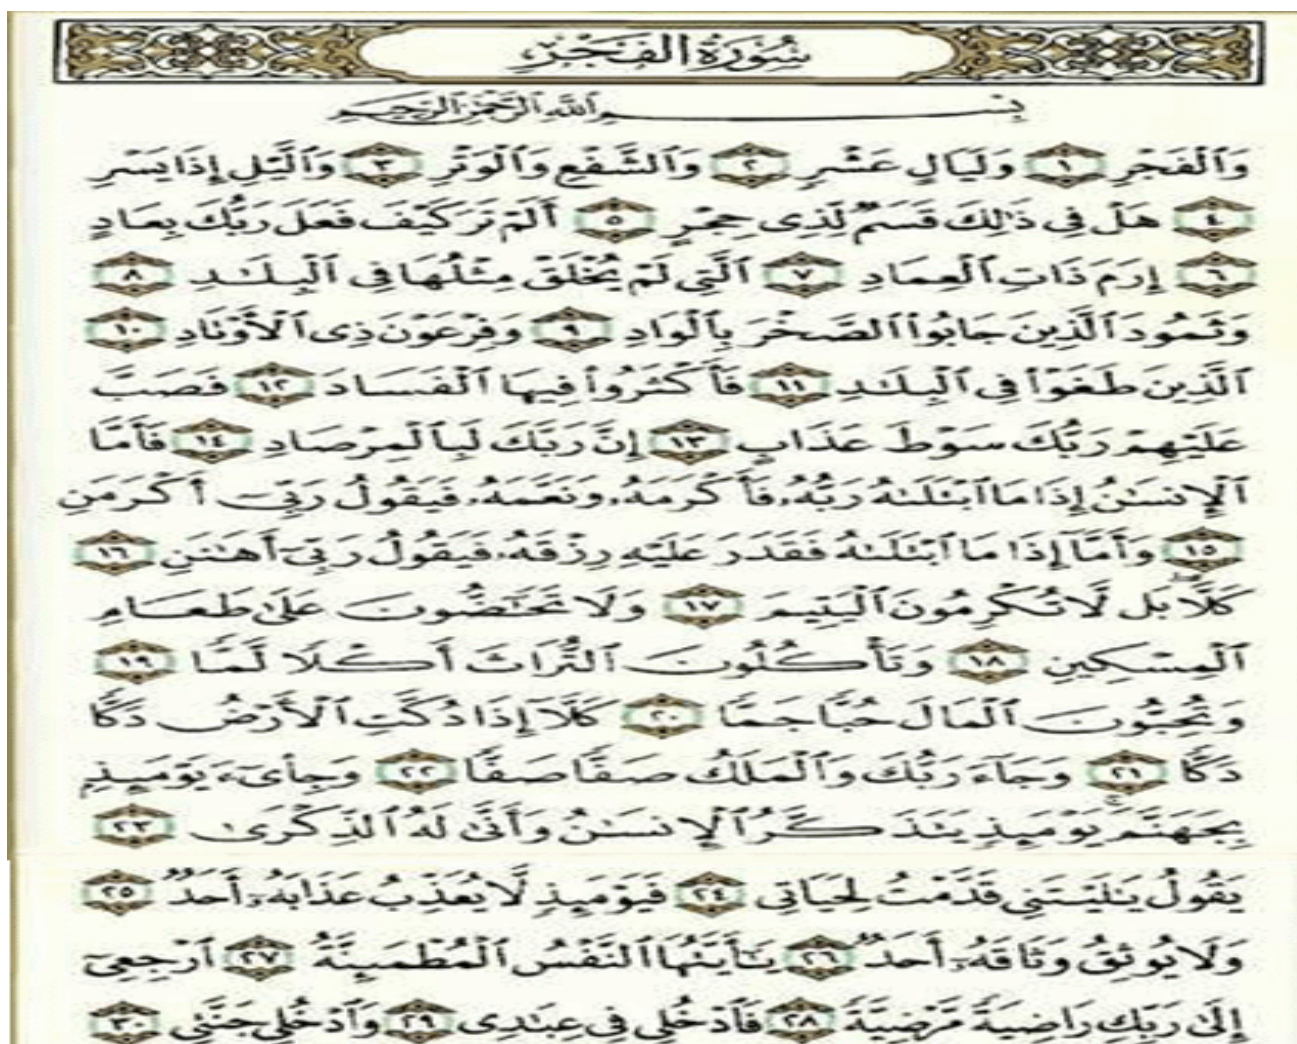 سُورَةُ الفَجْرِ
بِسْمِ ٱللَّهِ ٱلرَّحْمَٰنِ ٱلرَّحِيمِ
وَٱلْفَجْرِ ١ وَلَيَالٍ عَشْرٍ ٢ وَٱلشَّفْعِ وَٱلْوَتْرِ ٣ وَٱلَّيْلِ إِذَا يَسْرِ
٤ هَلْ فِى ذَٰلِكَ قَسَمٌ لِّذِى حِجْرٍ ٥ أَلَمْ تَرَ كَيْفَ فَعَلَ رَبُّكَ بِعَادٍ
٦ إِرَمَ ذَاتِ ٱلْعِمَادِ ٧ ٱلَّتِى لَمْ يُخْلَقْ مِثْلُهَا فِى ٱلْبِلَٰدِ ٨
وَثَمُودَ ٱلَّذِينَ جَابُوا۟ ٱلصَّخْرَ بِٱلْوَادِ ٩ وَفِرْعَوْنَ ذِى ٱلْأَوْتَادِ ١٠
ٱلَّذِينَ طَغَوْا۟ فِى ٱلْبِلَٰدِ ١١ فَأَكْثَرُوا۟ فِيهَا ٱلْفَسَادَ ١٢ فَصَبَّ
عَلَيْهِمْ رَبُّكَ سَوْطَ عَذَابٍ ١٣ إِنَّ رَبَّكَ لَبِٱلْمِرْصَادِ ١٤ فَأَمَّا
ٱلْإِنسَٰنُ إِذَا مَا ٱبْتَلَىٰهُ رَبُّهُۥ فَأَكْرَمَهُۥ وَنَعَّمَهُۥ فَيَقُولُ رَبِّىٓ أَكْرَمَنِ
١٥ وَأَمَّآ إِذَا مَا ٱبْتَلَىٰهُ فَقَدَرَ عَلَيْهِ رِزْقَهُۥ فَيَقُولُ رَبِّىٓ أَهَٰنَنِ ١٦
كَلَّا ۖ بَل لَّا تُكْرِمُونَ ٱلْيَتِيمَ ١٧ وَلَا تَحَٰٓضُّونَ عَلَىٰ طَعَامِ
ٱلْمِسْكِينِ ١٨ وَتَأْكُلُونَ ٱلتُّرَاثَ أَكْلًا لَّمًّا ١٩
وَتُحِبُّونَ ٱلْمَالَ حُبًّا جَمًّا ٢٠ كَلَّآ إِذَا دُكَّتِ ٱلْأَرْضُ دَكًّا
دَكًّا ٢١ وَجَآءَ رَبُّكَ وَٱلْمَلَكُ صَفًّا صَفًّا ٢٢ وَجِا۟ىٓءَ يَوْمَئِذٍۭ
بِجَهَنَّمَ ۚ يَوْمَئِذٍ يَتَذَكَّرُ ٱلْإِنسَٰنُ وَأَنَّىٰ لَهُ ٱلذِّكْرَىٰ ٢٣
يَقُولُ يَٰلَيْتَنِى قَدَّمْتُ لِحَيَاتِى ٢٤ فَيَوْمَئِذٍ لَّا يُعَذِّبُ عَذَابَهُۥٓ أَحَدٌ ٢٥
وَلَا يُوثِقُ وَثَاقَهُۥٓ أَحَدٌ ٢٦ يَٰٓأَيَّتُهَا ٱلنَّفْسُ ٱلْمُطْمَئِنَّةُ ٢٧ ٱرْجِعِىٓ
إِلَىٰ رَبِّكِ رَاضِيَةً مَّرْضِيَّةً ٢٨ فَٱدْخُلِى فِى عِبَٰدِى ٢٩ وَٱدْخُلِى جَنَّتِى ٣٠